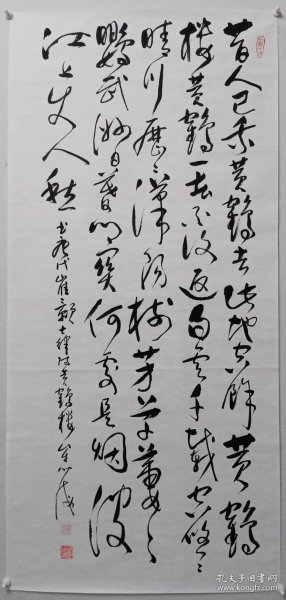 昔人已乘黄鹤去此地空馀黄鹤
楼黄鹤一去不复返白云千载空悠々
晴川历々汉阳树芳草萋々
鹦武洲日暮乡关何处是烟波
江上使人愁
书唐代崔颢七律诗黄鹤楼
孔夫子旧书网
kongfz.com